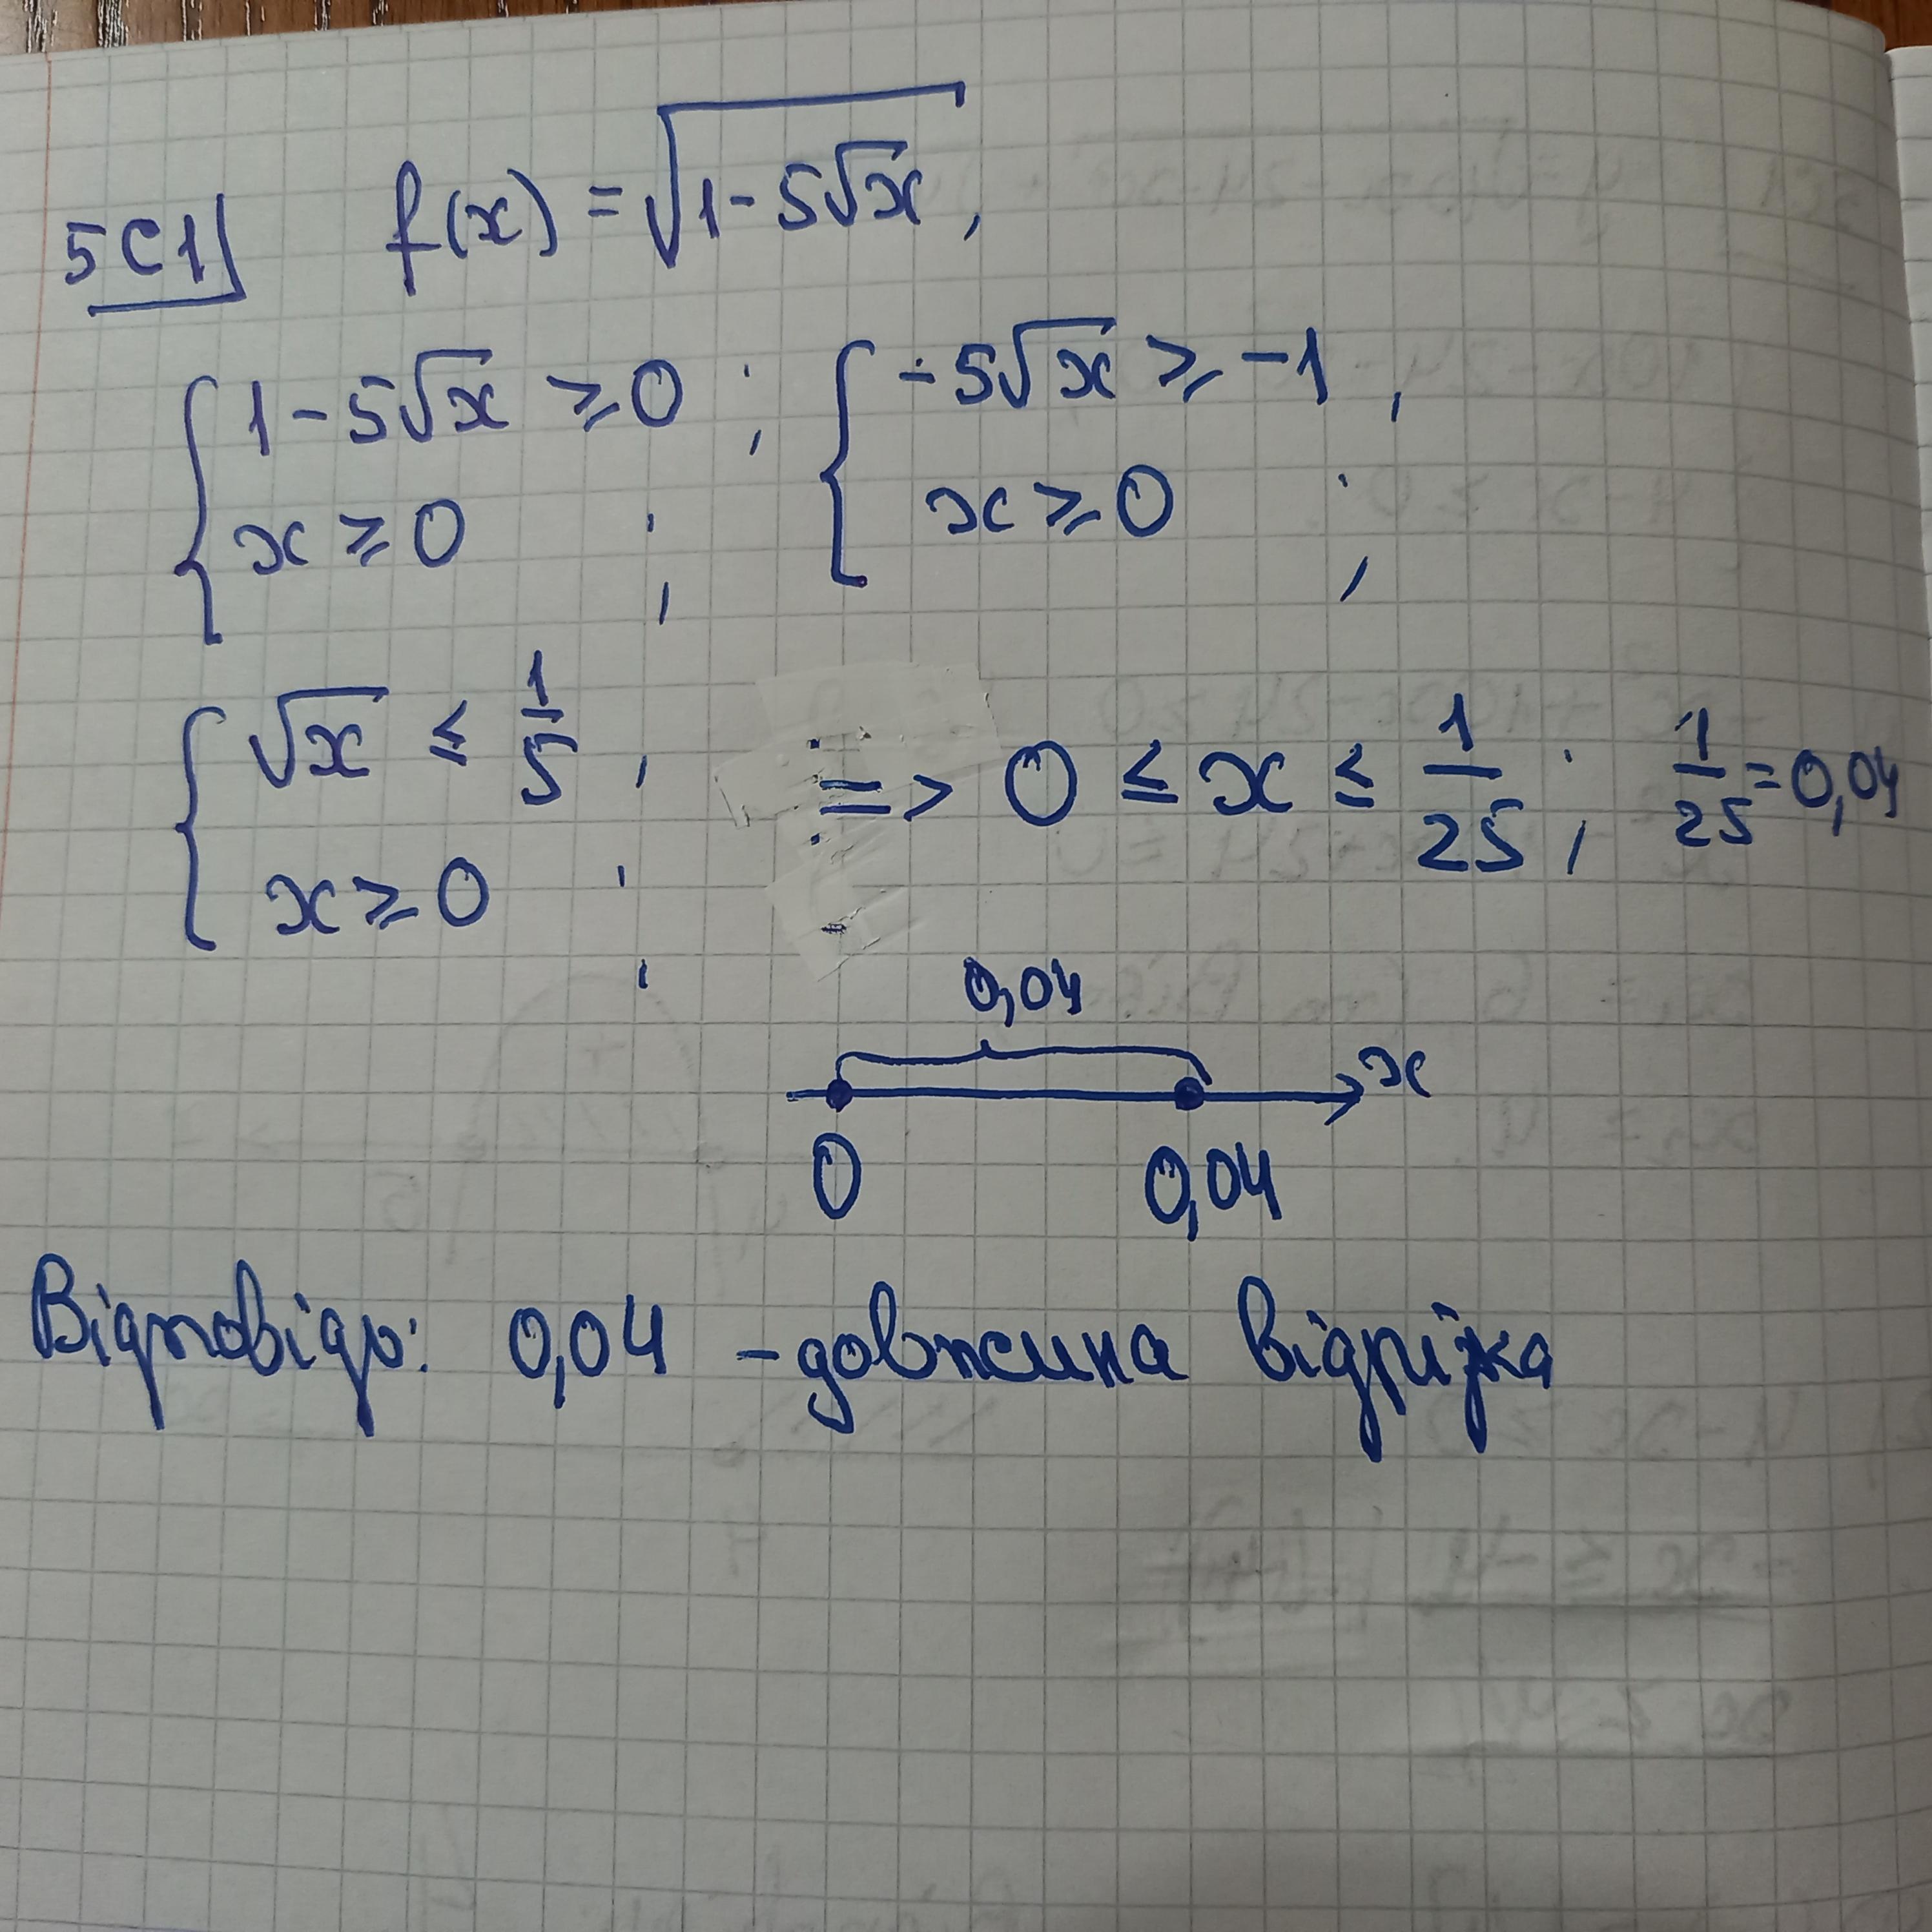 5С1 f(x) = √(1-5√x),
{ 1-5√x ≥ 0 ; { -5√x ≥ -1 ,
x ≥ 0 ; x ≥ 0 ;
{ √x ≤ 1/5 , => 0 ≤ x ≤ 1/25 ; 1/25 = 0,04
x ≥ 0 ;
0,04
x
0 0,04
Відповідь: 0,04 - довжина відрізка